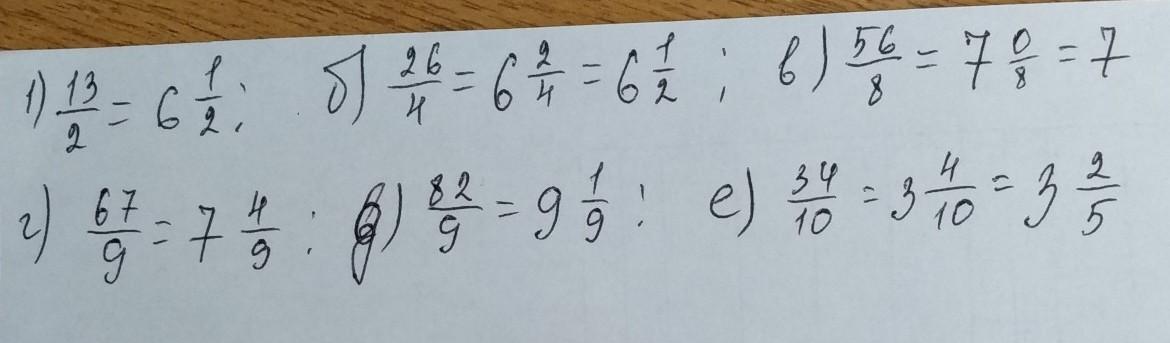 1) 13/2 = 6 1/2; б) 26/4 = 6 2/4 = 6 1/2; в) 56/8 = 7 0/8 = 7
г) 67/9 = 7 4/9; д) 82/9 = 9 1/9; е) 34/10 = 3 4/10 = 3 2/5